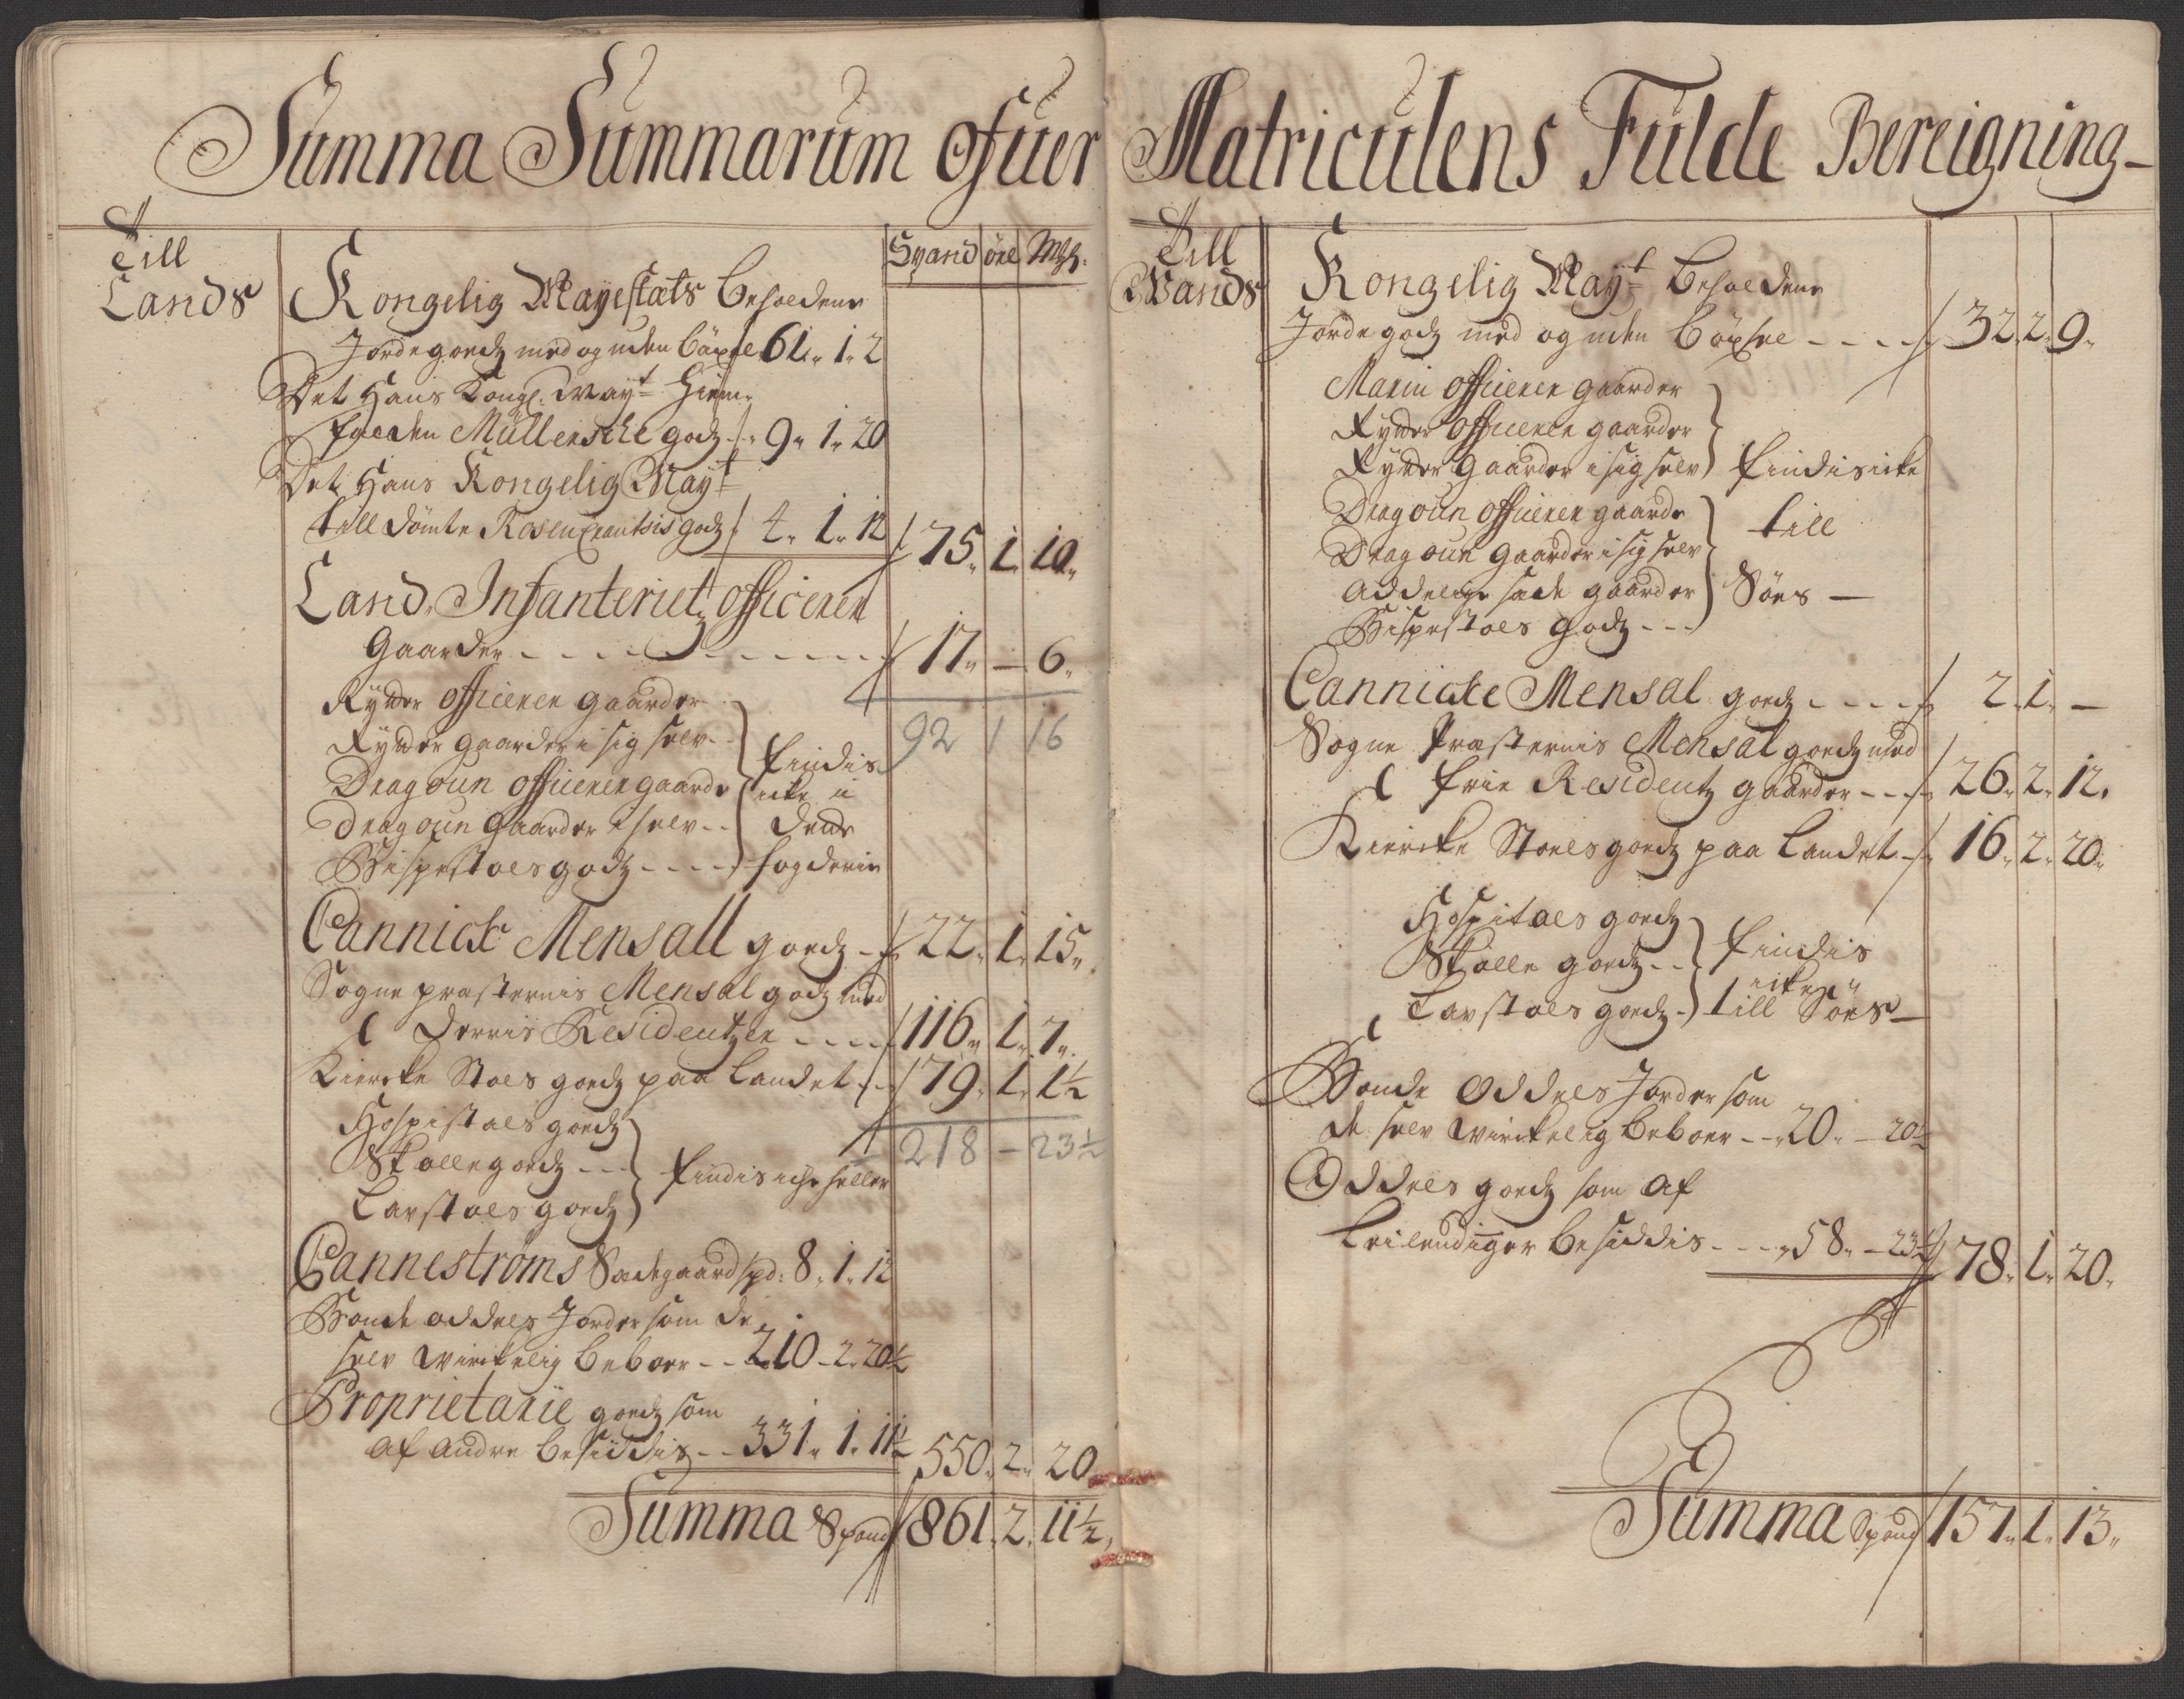 Summa Summarum Ofuer Matriculens Fulde Bereigning
Till
Lands
Spand öre Mkl.
Kongelig Mayestæts beholdene
Jordegoedz med og uden böxle 61. 1. 2
Det Hans Kongl. Mayt Hiem-
falden Müllerske godz 9. 1. 20
Det Hans Kongelig Mayt
till dömte Rosencrantsis godz 4. 1. 12 75. 1. 10.
Land Infanterietz officerer
Gaarder 17. - 6.
92 1 16
Rytter officerer gaarder
Rytter gaarder i sig selv
Dragoun officerer gaarde
Dragoun gaarder i selv
Bispestoels godz
findis
icke i
dette
fogderie
Cannicke Mensall goedz 22. 1. 15.
Sogne præsternis Mensal godz med
derris Residentzer 116. 1. 7.
Kiercke Stoels goedz paa Landet 79. 1. 1½
218 - 23½
Hospitaels goedz
Skolle goedz
Lavstoels goedz
findis iche heller
Cannestrøms Sædegaard spd: 8. 1. 12
Bonde oddels Jorder som de
selv Wirckelig beboer 210. 2. 20½
Proprietarie goedz som
af andre besiddis 331. 1. 11½ 550. 2. 20
Summa Spand 861. 2. 11½
Till
Wands
Kongelig Mayt beholdene
Jordegodz med og uden böxsel 32. 2. 9.
Marin officerer gaarder
Rytter officerer gaarder
Rytter gaarder i sig selv
Dragoun officerer gaarde
Dragoun gaarder i sig selv
addelige sæde gaarder
Bispestoels godz
findis icke
till
Söes
Cannicke Mensal goedz 2. 1. -
Sogne Præsternis Mensal goedz med
frie Residentz gaarder 26. 2. 12.
Kiercke Stoels goedz paa Landet 16. 2. 20.
Hospitaels goedz
Skolle goedz
Lavstoels goedz
findis
icke
till Söes
Bonde Oddels Jorder som
de selv Wirckelig beboer 20. - 20½
Oddels goedz som af
Leilendinger besiddis 58. - 23½ 78. 1. 20.
Summa Spand 157. 1. 13.